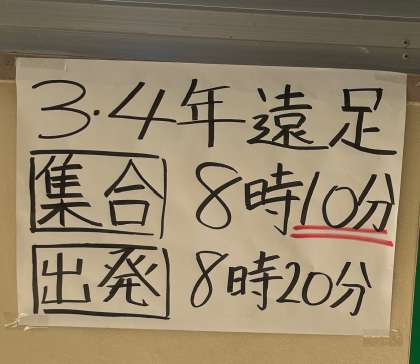 3・4年遠足
集合 8時10分
出発 8時20分